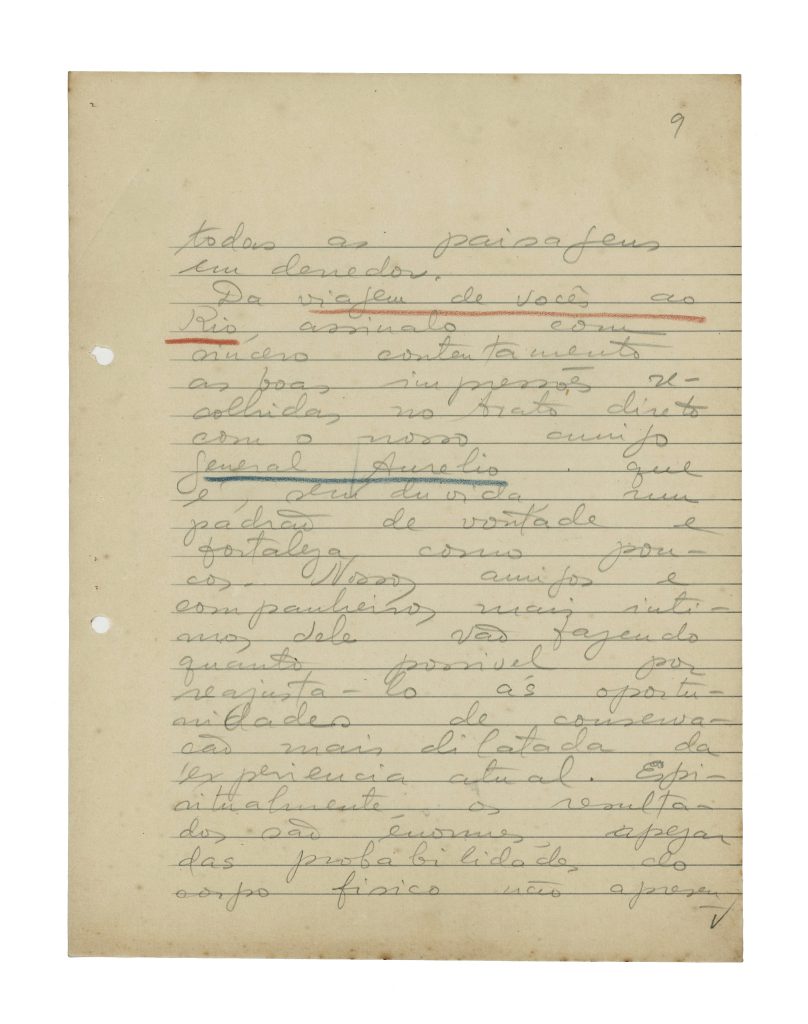 9
todas as paisagens
em derredor.
Da viagem de vocês ao
Rio, assinalo com
sincero contentamento
as boas impressões re-
colhidas no trato direto
com o nosso amigo
general Aurelio que
é, sem duvida, um
padrão de vontade e
fortaleza como pou-
cos. Nossos amigos e
companheiros mais inti-
mos dele vão fazendo
quanto possivel por
reajusta-lo ás oportu-
nidades de conserva-
cão mais dilatada da
experiencia atual. Espi-
ritualmente os resulta-
dos são enormes, apezar
das probabilidades do
corpo fisico não apresen